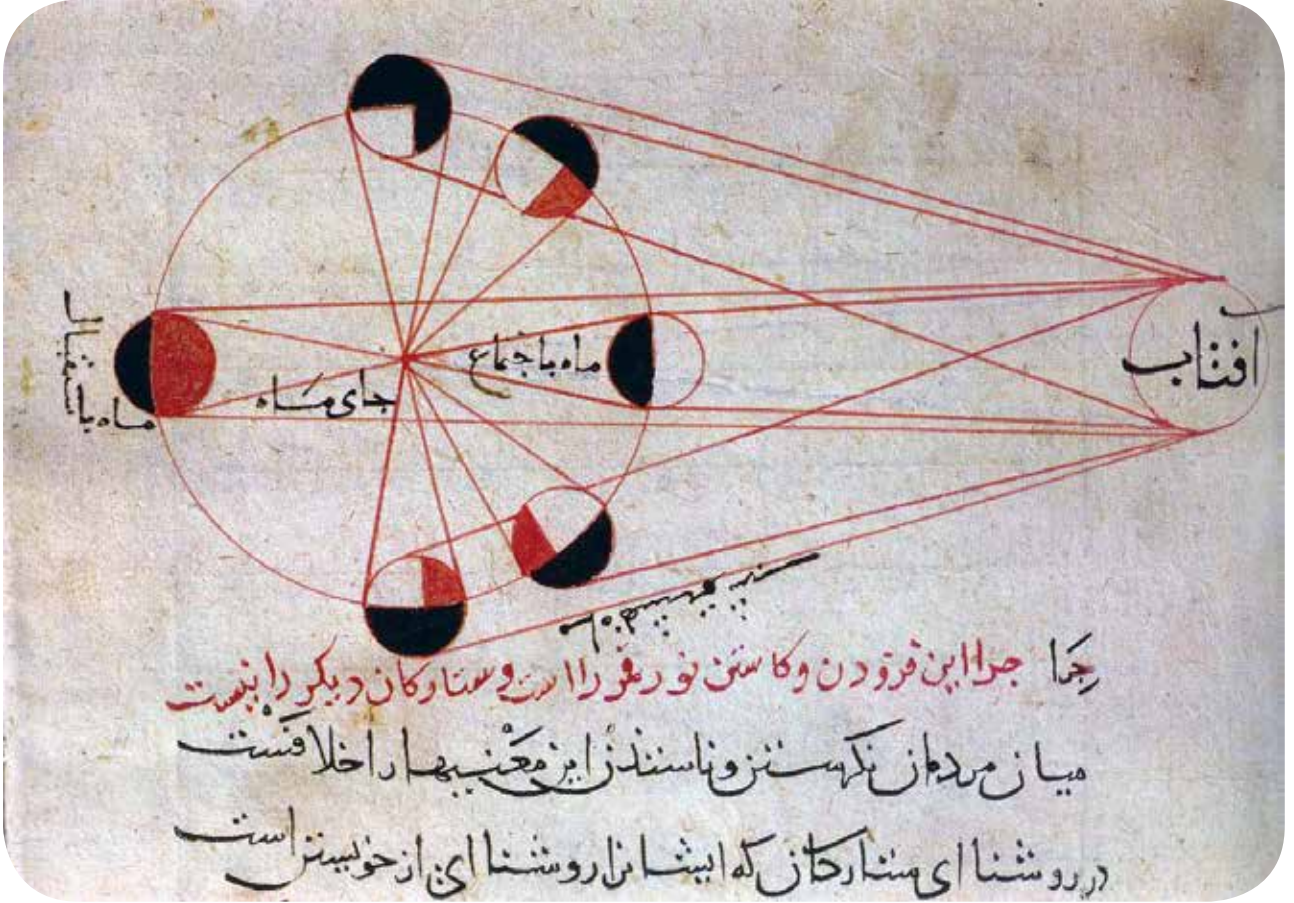 افتاب
ماه باجتماع
جای ماه
ماه باستقبال
چرا جرا این فزودن وکاستن نور قمر را است و ستارکان دیکر را نیست
میان مردمان نکرستن این معنیها را خلافست
در روشناای ستارکان که ایشانرا روشناای از خویشتن است